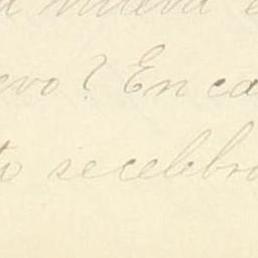 nueva
evo? En ca
to secelebr